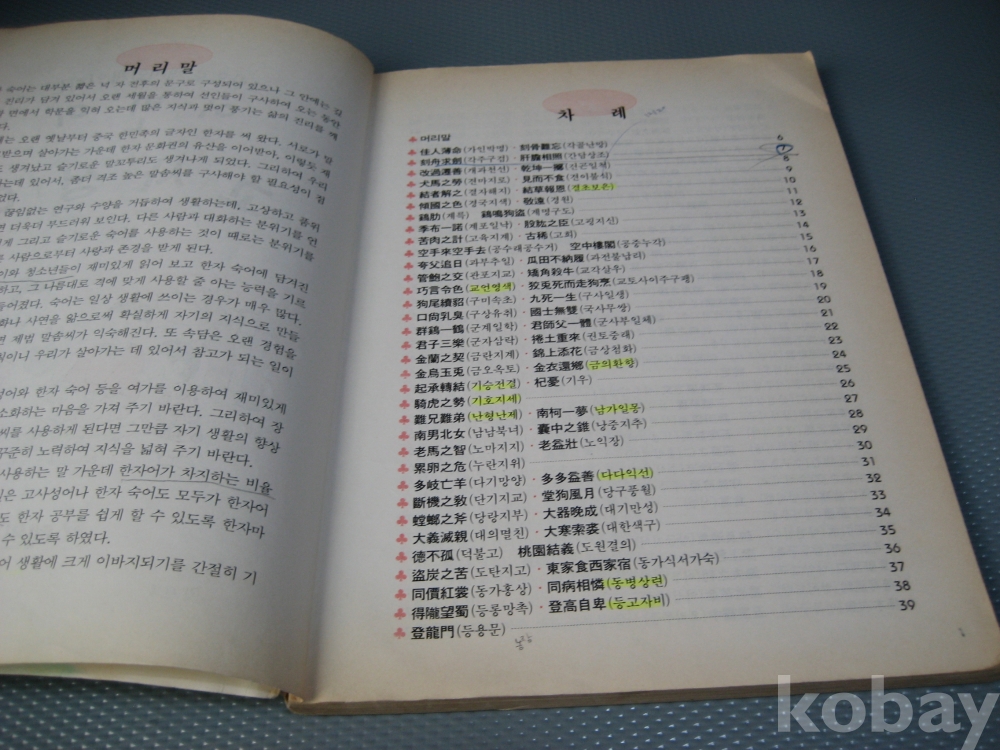 머 리 말
숙어는 대부분
전후의 문구로 구성되어 있으나 그 안에는 깊
진리가 담겨 있어서 오랜 생활을 통하여 선인들이 구사하여 오는 동안
면에서 학문을 익혀 오는데 많은 지식과 멋이 풍기는 삶의 진리를 깨
다.
는 오랜 옛날부터 중국 한민족의 글자인 한자를 써 왔다. 서로가 말
받으며 살아가는 가운데 한자 문화권의 유산을 이어받아, 이렇듯 재
생겨났고 슬기로운 말꼬투리도 생겨나게 되었다. 그리하여 우리
는데 있어서, 좀더 격조 높은 말솜씨를 구사해야 할 필요성이 점
었다.
끊임없는 연구와 수양을 거듭하여 생활하는데, 고상하고 품위
면 더욱더 부드러워 보인다. 다른 사람과 대화하는 분위기를 언
게 그리고 슬기로운 숙어를 사용하는 것이 때로는 분위기를
른 사람으로부터 사랑과 존경을 받게 된다.
이와 청소년들이 재미있게 읽어 보고 한자 숙어에 담겨진
하고, 그 나름대로 격에 맞게 사용할 줄 아는 능력을 기르
들어졌다. 숙어는 일상 생활에 쓰이는 경우가 매우 많다.
하나 사연을 앎으로써 확실하게 자기의 지식으로 만들
면 제법 말솜씨가 익숙해진다. 또 속담은 오랜 경험을
이니 우리가 살아가는 데 있어서 참고가 되는 일이
성어와 한자 숙어 등을 여가를 이용하여 재미있게
소화하는 마음을 가져 주기 바란다. 그리하여 장
씨를 사용하게 된다면 그만큼 자기 생활의 향상
꾸준히 노력하여 지식을 넓혀 주기 바란다.
사용하는 말 가운데 한자어가 차지하는 비율
은 고사성어나 한자 숙어도 모두가 한자어
도 한자 공부를 쉽게 할 수 있도록 한자마
수 있도록 하였다.
어 생활에 크게 이바지되기를 간절히 기
차 례
♣ 머리말 6
♣ 佳人薄命(가인박명) · 刻骨難忘(각골난망) 7
♣ 刻舟求劍(각주구검) · 肝膽相照(간담상조) 8
♣ 改過遷善(개과천선) · 乾坤一擲(건곤일척) 9
♣ 犬馬之勞(견마지로) · 見而不食(견이불식) 10
♣ 結者解之(결자해지) · 結草報恩(결초보은) 11
♣ 傾國之色(경국지색) · 敬遠(경원) 12
♣ 鷄肋(계륵) 鷄鳴狗盜(계명구도) 13
♣ 季布一諾(계포일낙) · 股肱之臣(고굉지신) 14
♣ 苦肉之計(고육지계) · 古稀(고희) 15
♣ 空手來空手去(공수래공수거) 空中樓閣(공중누각) 16
♣ 夸父追日(과부추일) · 瓜田不納履(과전불납리) 17
♣ 管鮑之交(관포지교) · 矯角殺牛(교각살우) 18
♣ 巧言令色(교언영색) · 狡兎死而走狗烹(교토사이주구팽) 19
♣ 狗尾續貂(구미속초) · 九死一生(구사일생) 20
♣ 口尙乳臭(구상유취) · 國士無雙(국사무쌍) 21
♣ 群鷄一鶴(군계일학) · 君師父一體(군사부일체) 22
♣ 君子三樂(군자삼락) · 捲土重來(권토중래) 23
♣ 金蘭之契(금란지계) · 錦上添花(금상첨화) 24
♣ 金烏玉兎(금오옥토) · 金衣還鄕(금의환향) 25
♣ 起承轉結(기승전결) · 杞憂(기우) 26
♣ 騎虎之勢(기호지세) 27
♣ 難兄難弟(난형난제) · 南柯一夢(남가일몽) 28
♣ 南男北女(남남북녀) · 囊中之錐(낭중지추) 29
♣ 老馬之智(노마지지) · 老益壯(노익장) 30
♣ 累卵之危(누란지위) 31
♣ 多岐亡羊(다기망양) · 多多益善(다다익선) 32
♣ 斷機之敎(단기지교) · 堂狗風月(당구풍월) 33
♣ 螳螂之斧(당랑지부) · 大器晩成(대기만성) 34
♣ 大義滅親(대의멸친) · 大寒索裘(대한색구) 35
♣ 德不孤(덕불고) 桃園結義(도원결의) 36
♣ 塗炭之苦(도탄지고) · 東家食西家宿(동가식서가숙) 37
♣ 同價紅裳(동가홍상) · 同病相憐(동병상련) 38
♣ 得隴望蜀(등롱망촉) · 登高自卑(등고자비) 39
♣ 登龍門(등용문)
kobay